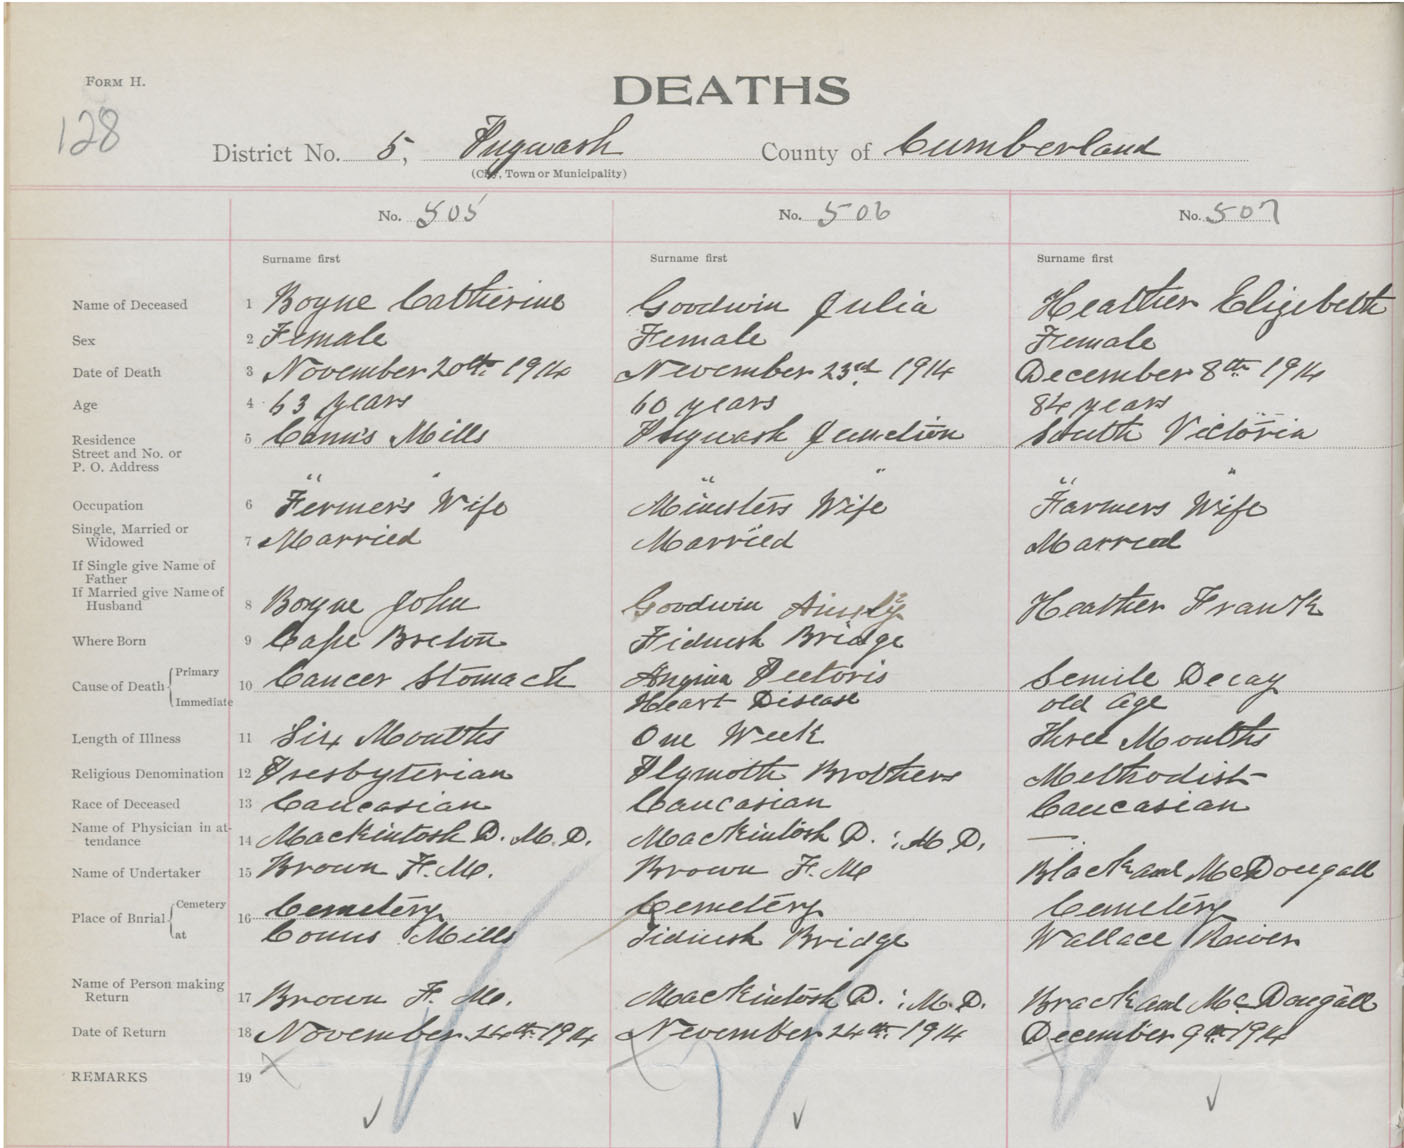 FORM H.
DEATHS
128
District No. 5, Pugwash County of Cumberland
(City, Town or Municipality)
No. 505 No. 506 No. 507
Surname first Surname first Surname first
Name of Deceased 1 Boyne Catherine Goodwin Julia Heather Elizebeth
Sex 2 Female Female Female
Date of Death 3 November 20th 1914 November 23rd 1914 December 8th 1914
Age 4 63 years 60 years 84 years
Residence 5 Conn's Mills Pugwash Junction South Victoria
Street and No. or
P. O. Address
" " " " " "
Occupation 6 Farmer's Wife Minister's Wife Farmers Wife
Single, Married or
Widowed 7 Married Married Married
If Single give Name of
Father
If Married give Name of
Husband 8 Boyne John Goodwin Heather Frank
Where Born 9 Cape Breton Tidnish Bridge
Cause of Death Primary 10 Cancer Stomach Angina Pectoris Senile Decay
Immediate Heart Disease old age
Length of Illness 11 Six Months One Week Three Months
Religious Denomination 12 Presbyterian Plymoth Brothers Methodist
Race of Deceased 13 Caucasian Caucasian Caucasian
Name of Physician in at-
tendance 14 Mackintosh D. M. D. Mackintosh D. : M. D. —
Name of Undertaker 15 Brown F. M. Brown F. M Black and McDougall
Place of Burial Cemetery 16 Cemetery Cemetery Cemetery
at Conns Mills Tidnish Bridge Wallace River
Name of Person making
Return 17 Brown F. M. Mackintosh D. : M. D. Black and McDougall
Date of Return 18 November 24th 1914 November 24th 1914 December 9th 1914
REMARKS 19